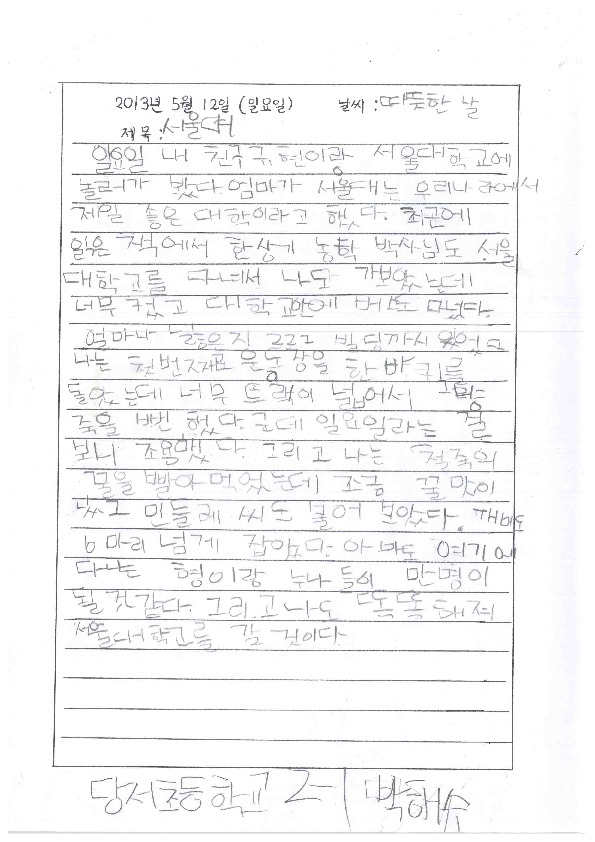 2013년 5월 12일 (일요일) 날씨 : 따뜻한 날
제목 : 서울대
일요일 내 친구 규현이랑 서울대학교에
놀러가 봤다. 엄마가 서울대는 우리나라에서
제일 좋은 대학이라고 했다. 최근에
읽은 책에서 한상기 농학 박사님도 서울
대학교를 다녀서 나도 가보았는데
너무 컸고 대학교안에 버스도 다녔다.
얼마나 넓은지 222 빌딩까지 있었고
나는 첫번째로 운동장을 한 바퀴를
돌았는데 너무 트랙이 넓어서
죽을 뻔 했다. 근데 일요일라는 걸
보니 조용했다. 그리고 나는 철쭉의
꿀을 빨아 먹었는데 조금 꿀맛이
났고 민들레 씨도 불어 보았다.
6마리 넘게 잡았다. 아마도 여기에
다니는 형이랑 누나들이 만명이
될것같다. 그리고 나도 똑똑해져
서울대학교를 갈 것이다.
당서초등학교 2-1 박해수